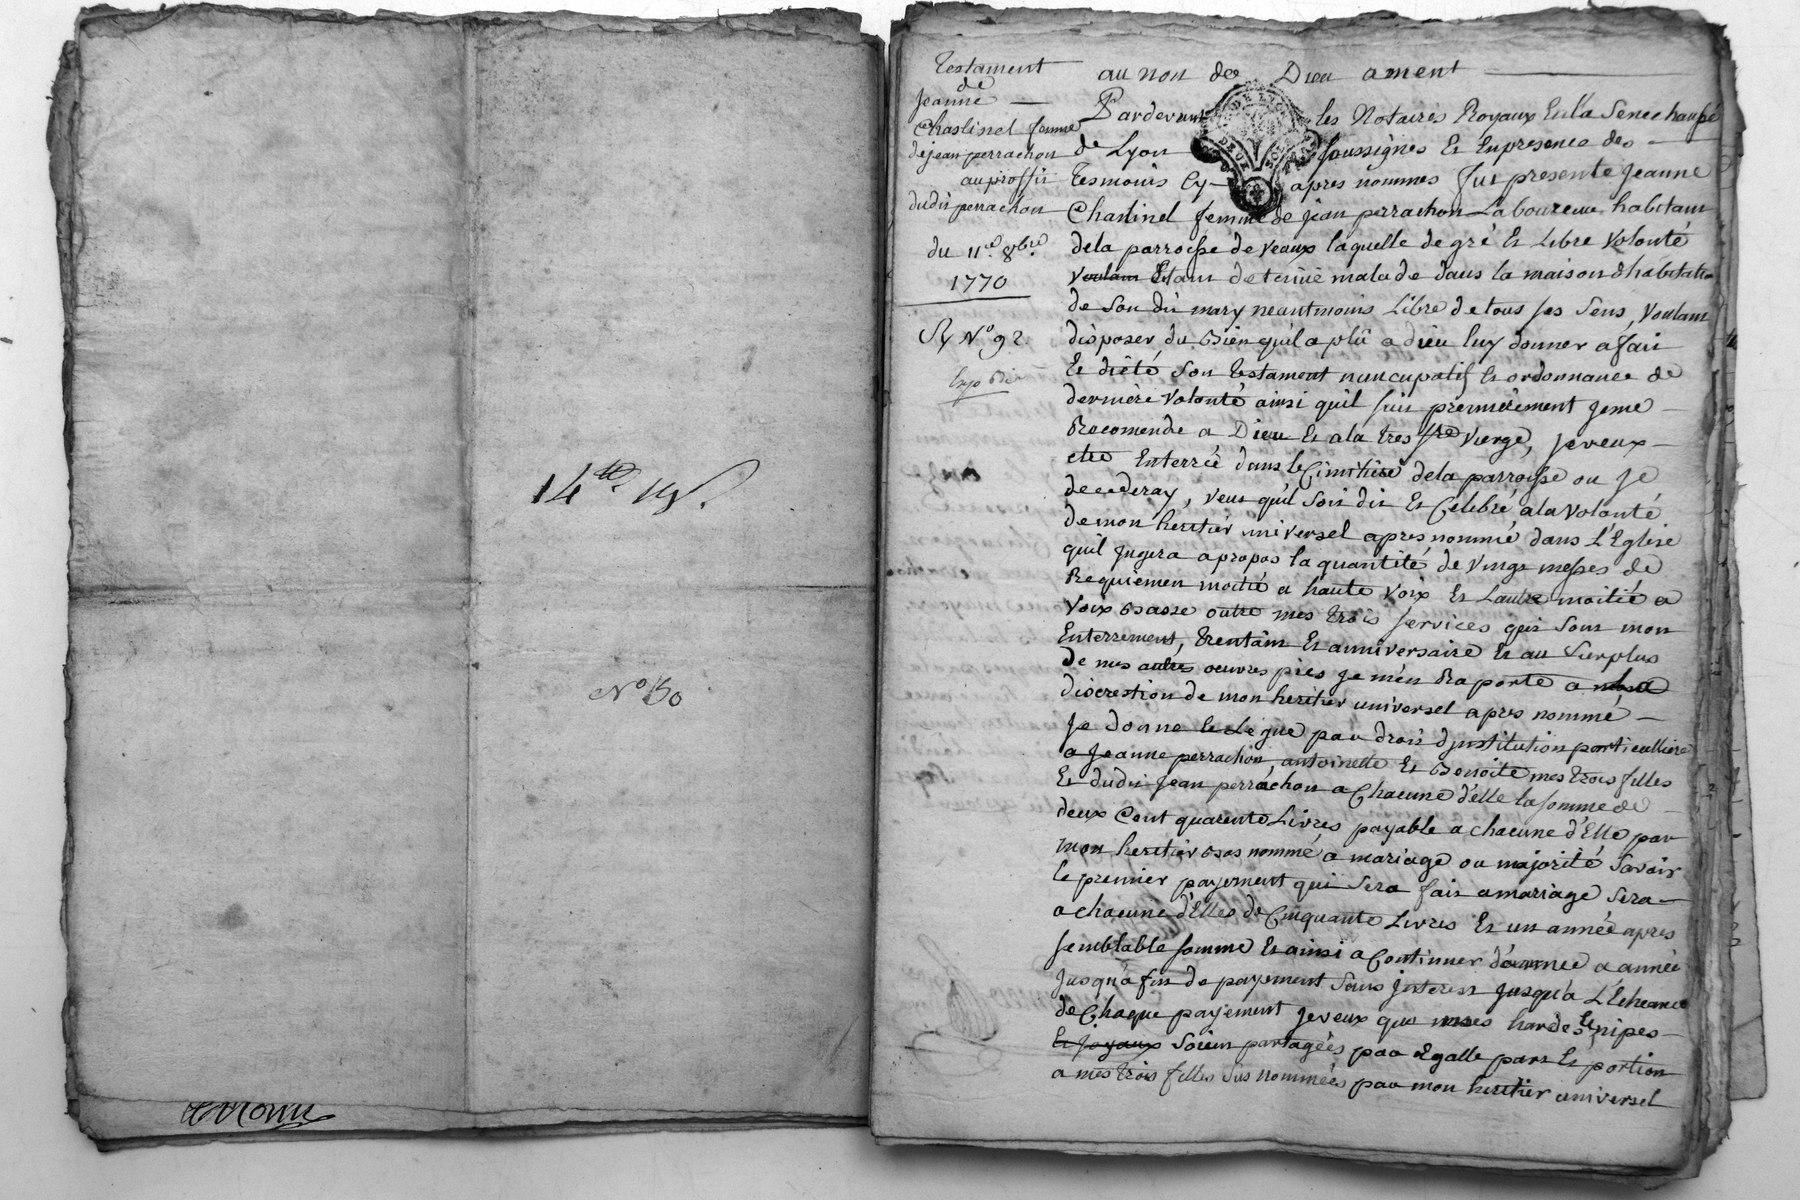 14
N° 130
Testament
de
Jeanne
Chaslinel femme
de jean perrachon
au proffit
dudit perrachon
du 11e 8bre
1770
N° 92
au non de Dieu ament
Pardevant les Notaires Royaux En la Senechaussé
de Lyon soussignés Et En presence des
Tesmoins Cy apres nommes fut presente Jeanne
Chaslinel femme de jean perrachon Laboureur habitant
dela parroisse de Veaux laquelle de gré Et Libre Volonté
Voulant Etant detenüe malade dans la maison dhabitation
de Son dit mary neantmoins Libre de tous ses Sens, Voulant
disposer du Bien quil a plû a dieu luy donner a fait
Et dicté Son testament nuncupatif Et ordonnance de
derniere Volonté ainsi quil suit premierement Jeme
Recomende a Dieu Et a la tres ste Vierge, je veux
etre Enterrée dans le Cimitiere dela parroisse ou Je
decederay, veux quil Soit dit Et Célebré a la Volonté
de mon heritier universel apres nommé dans L'Eglise
quil Jugera apropos la quantité de Vingt messes de
Requiemen moitié a haute Voix Et Lautre moitié a
Voix Basse outre mes trois services qui Sont mon
Enterrement, trentain Et anniversaire Et au Surplus
de mes autres oeuvres pies Je m'en Raporte a
discrestion de mon heritier universel apres nommé
Je donne Et Legue par droit d'institution particulliere
a Jeanne perrachon, antoinette Et Benoite mes trois filles
Et dudit Jean perrachon a Chacune d'elle la somme de
deux Cent quarente Livres payable a chacune d'Elle par
mon heritier Bas nommé a mariage ou majorité Savoir
le premier payement qui Sera fait a mariage Sera
a chacune d'Elles de Cinquante Livres Et un année apres
semblable somme Et ainsi a Continuer d'année a année
Jusqu'a fin de payement Sans Interest Jusqu'a L'Echeance
de Chaque payement Je veux que mes hardes Et nipes
Et joyaux Soient partagées par Egalle part Et portion
a mes trois filles Sus nommées par mon heritier universel